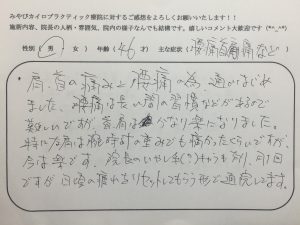 みやびカイロプラクティック療院に対するご感想をよろしくお願いいたします!!
施術内容、院長の人柄・雰囲気、院内の様子などでも結構です。嬉しいコメント大歓迎です(*^_^*)
性別( 男 ・ 女 ) 年齢( 46 才) 主な症状( 腰痛 肩 痛など )
肩、首の痛みと腰痛の為、通いはじめ
ました。腰痛は長い間の習慣などがあるので
難しいですが、首肩は かなり楽になりました。
特に左肩は腕時計の重みでも痛かったくらいですが、
今は楽です。院長のいやし系(?)キャラもあり、月1回
ですが日頃の疲れをリセットしてもらう形で通院してます。